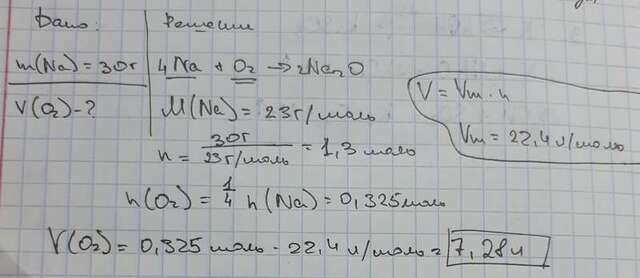 Дано:
Решение
m(Na) = 30г
4Na + O₂ → 2Na₂O
V(O₂) - ?
M(Na) = 23г/моль
n = 30г / 23г/моль = 1,3 моль
n(O₂) = 1/4 n(Na) = 0,325моль
V(O₂) = 0,325 моль · 22,4 л/моль = 7,28л
V = Vm · n
Vm = 22,4 л/моль